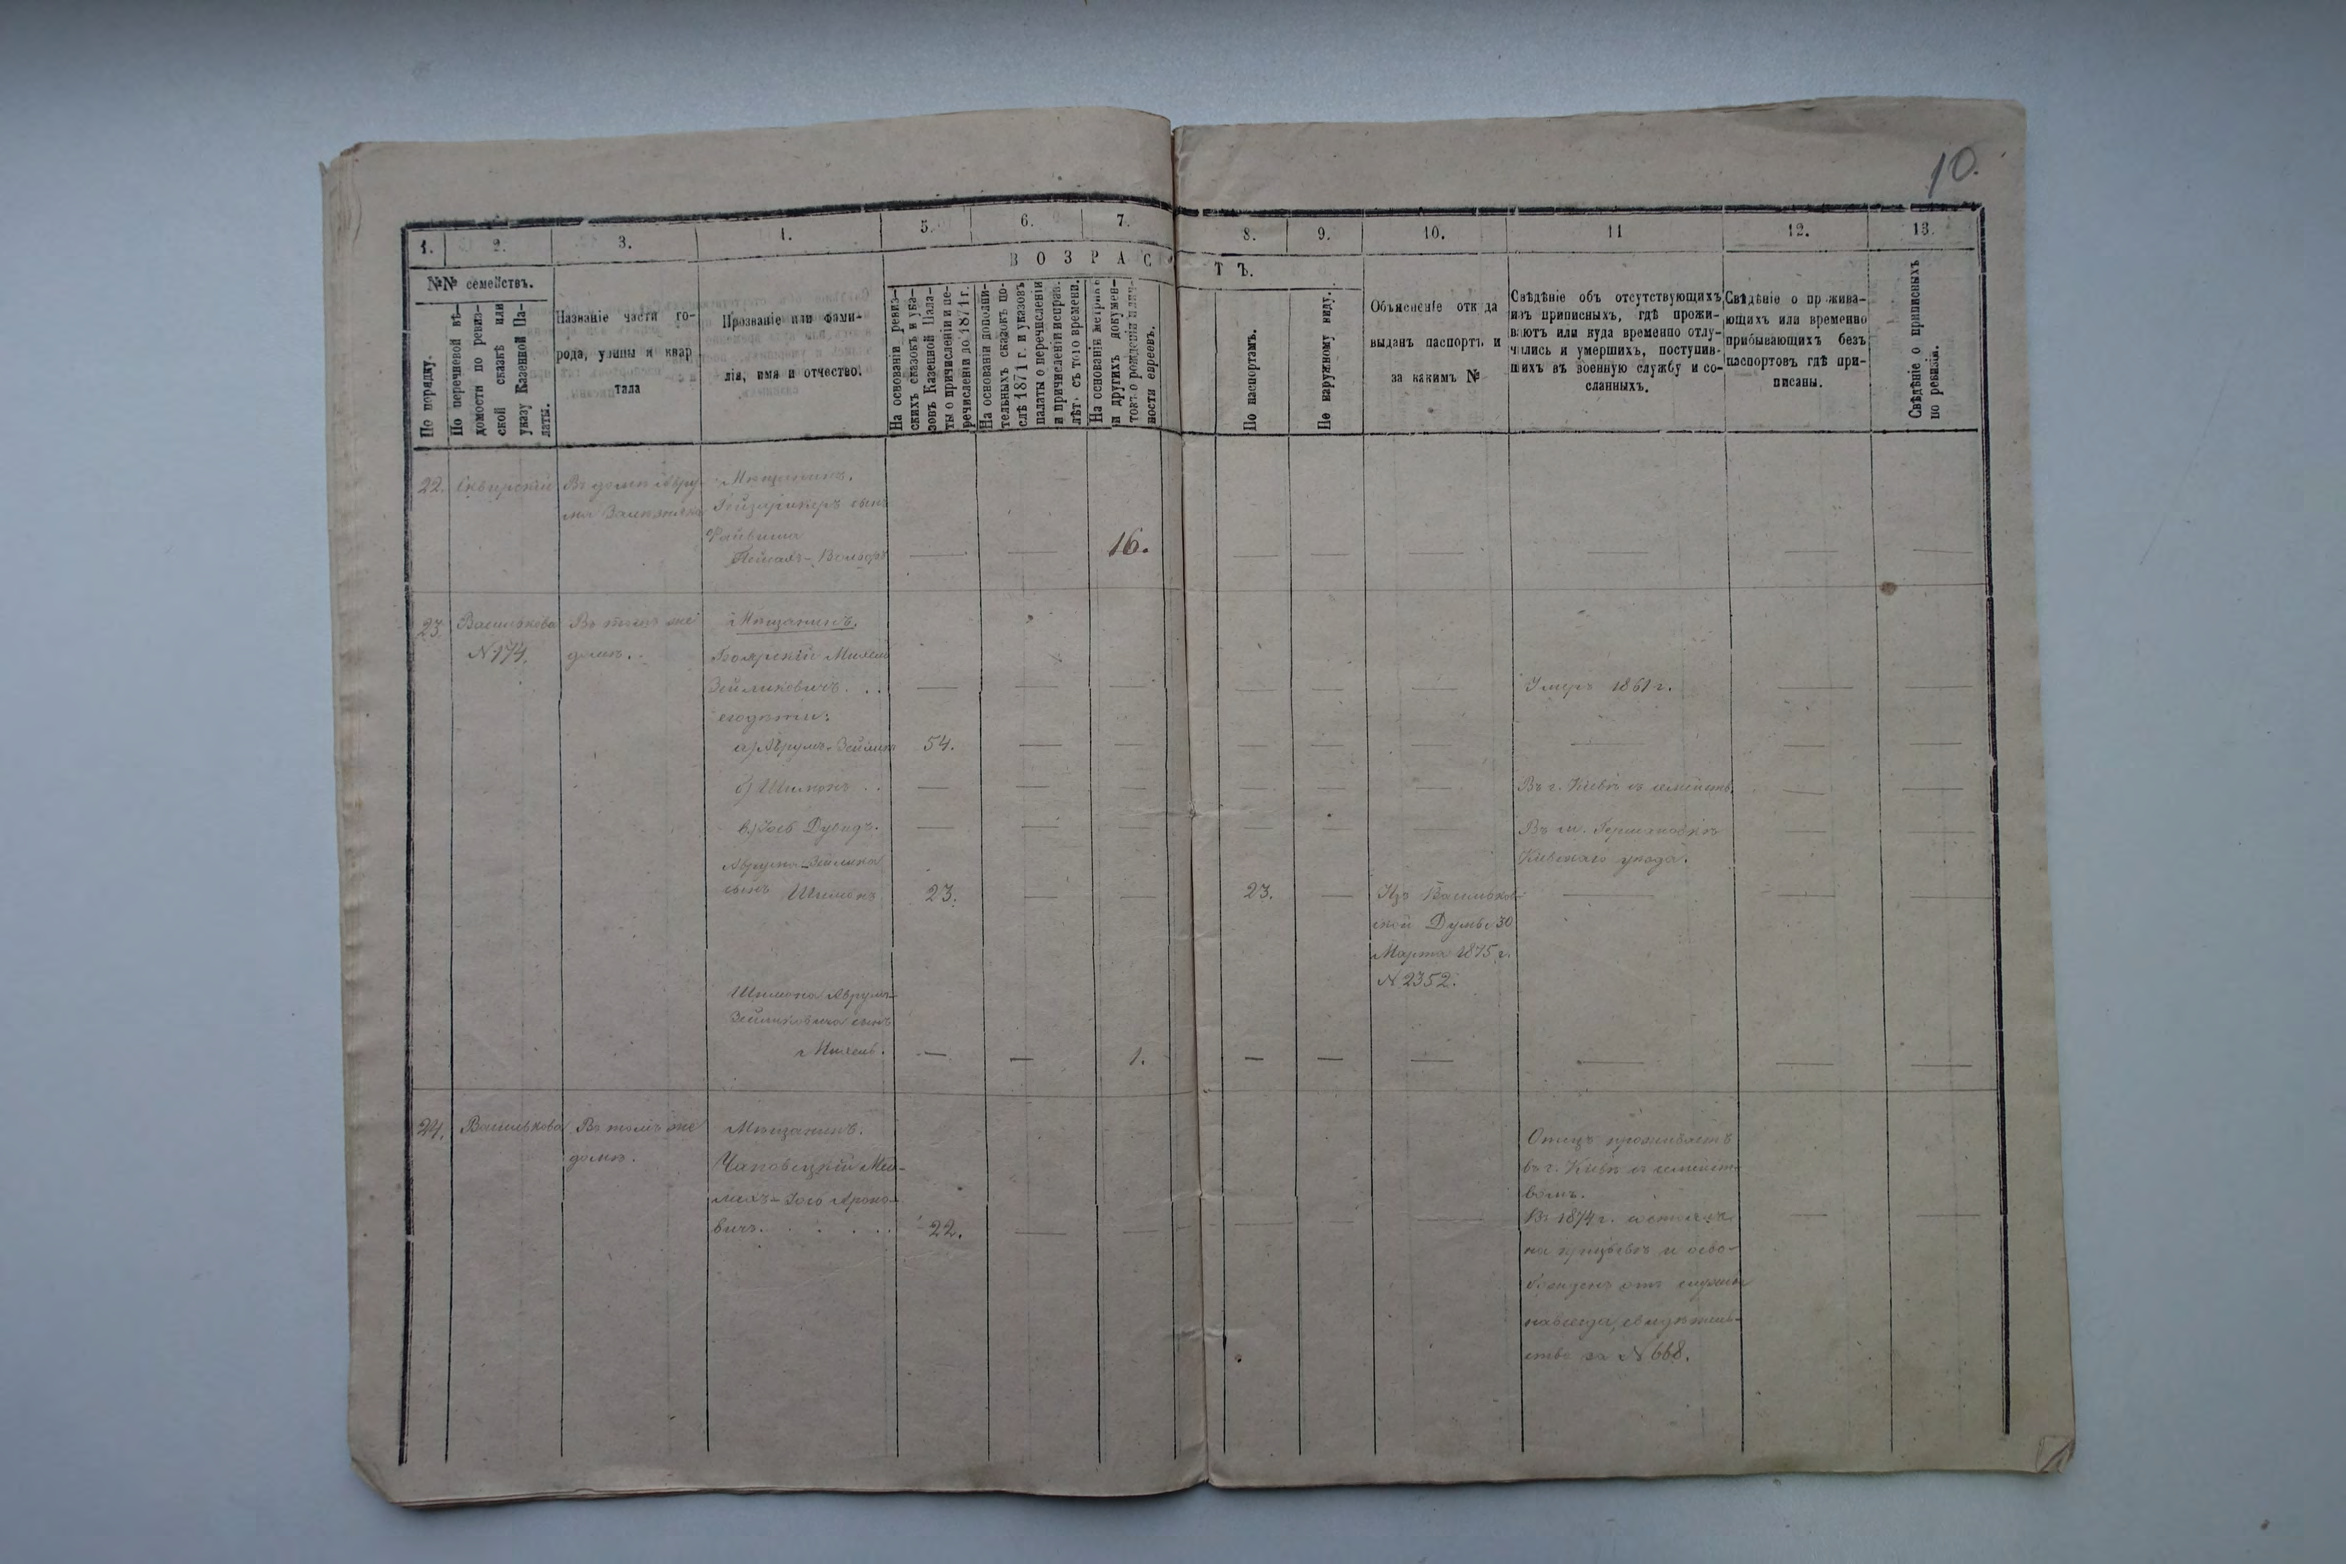 10.
1. 2. 3. 4. 5. 6. 7. 8. 9. 10. 11 12. 13.
№№ семействъ.
По порядку.
По перечневой вѣ-
домости по ревиз-
ской сказкѣ или
указу Казенной Па-
латы.
Названіе части го-
рода, улицы и квар
тала
Прозваніе или фами-
лія, имя и отчество.
ВОЗРАСТЪ.
На основаніи ревиз-
скихъ сказокъ и ука-
зовъ Казенной Пала-
ты о причисленіи и пе-
речисленіи до 1871 г.
На основаніи дополни-
тельныхъ сказокъ по-
слѣ 1871 г. и указовъ
палаты о перечисленіи
и причисленіи исправ.
лѣтъ съ того времени.
На основаніи метрик
и другихъ докумен-
товъ о рожденіи и лич-
ности евреевъ.
По паспортамъ.
По наружному виду.
Объясненіе отк да
выданъ паспортъ и
за какимъ №
Свѣдѣніе объ отсутствующихъ
изъ приписныхъ, гдѣ прожи-
ваютъ или куда временно отлу-
чились и умершихъ, поступив-
шихъ въ военную службу и со-
сланныхъ.
Свѣдѣніе о пр жива-
ющихъ или временно
прибывающихъ безъ
паспортовъ гдѣ при-
писаны.
Свѣдѣніе о приписныхъ
по ревизіи.
22. Сквирскій Въ домѣ Авру- Мѣщанинъ.
сынъ
Файвиша
Вольфъ 16.
23. Василькова Въ томъ же Мѣщанинъ.
№ 174. домѣ. Михель
Зейликовичъ. . . Умеръ 1861 г.
его дѣти:
а) Аврумъ-Зейликъ 54.
б) Шимонъ . . Въ г. Кіевѣ съ семейств.
в) Іось Дувидъ. Въ м. Германовкѣ
Аврума-Зейлика Кіевскаго уѣзда.
сынъ Шимонъ 23. 23. Изъ Васильков-
ской Думы 30
Марта 1875 г.
№ 2352.
Шимона Аврумъ-
Зейликовича сынъ
Михель. 1.
24. Василькова Въ томъ же Мѣщанинъ. Отецъ проживаетъ
домѣ. Чаповецкій Мей- въ г. Кіевѣ съ семейст-
лехъ-Іось Ароно- вомъ.
вичъ. . . . . 22. Въ 1874 г. состоялъ
на призывѣ и осво-
божденъ отъ службы
навсегда, свидѣтель-
ство за № 668.